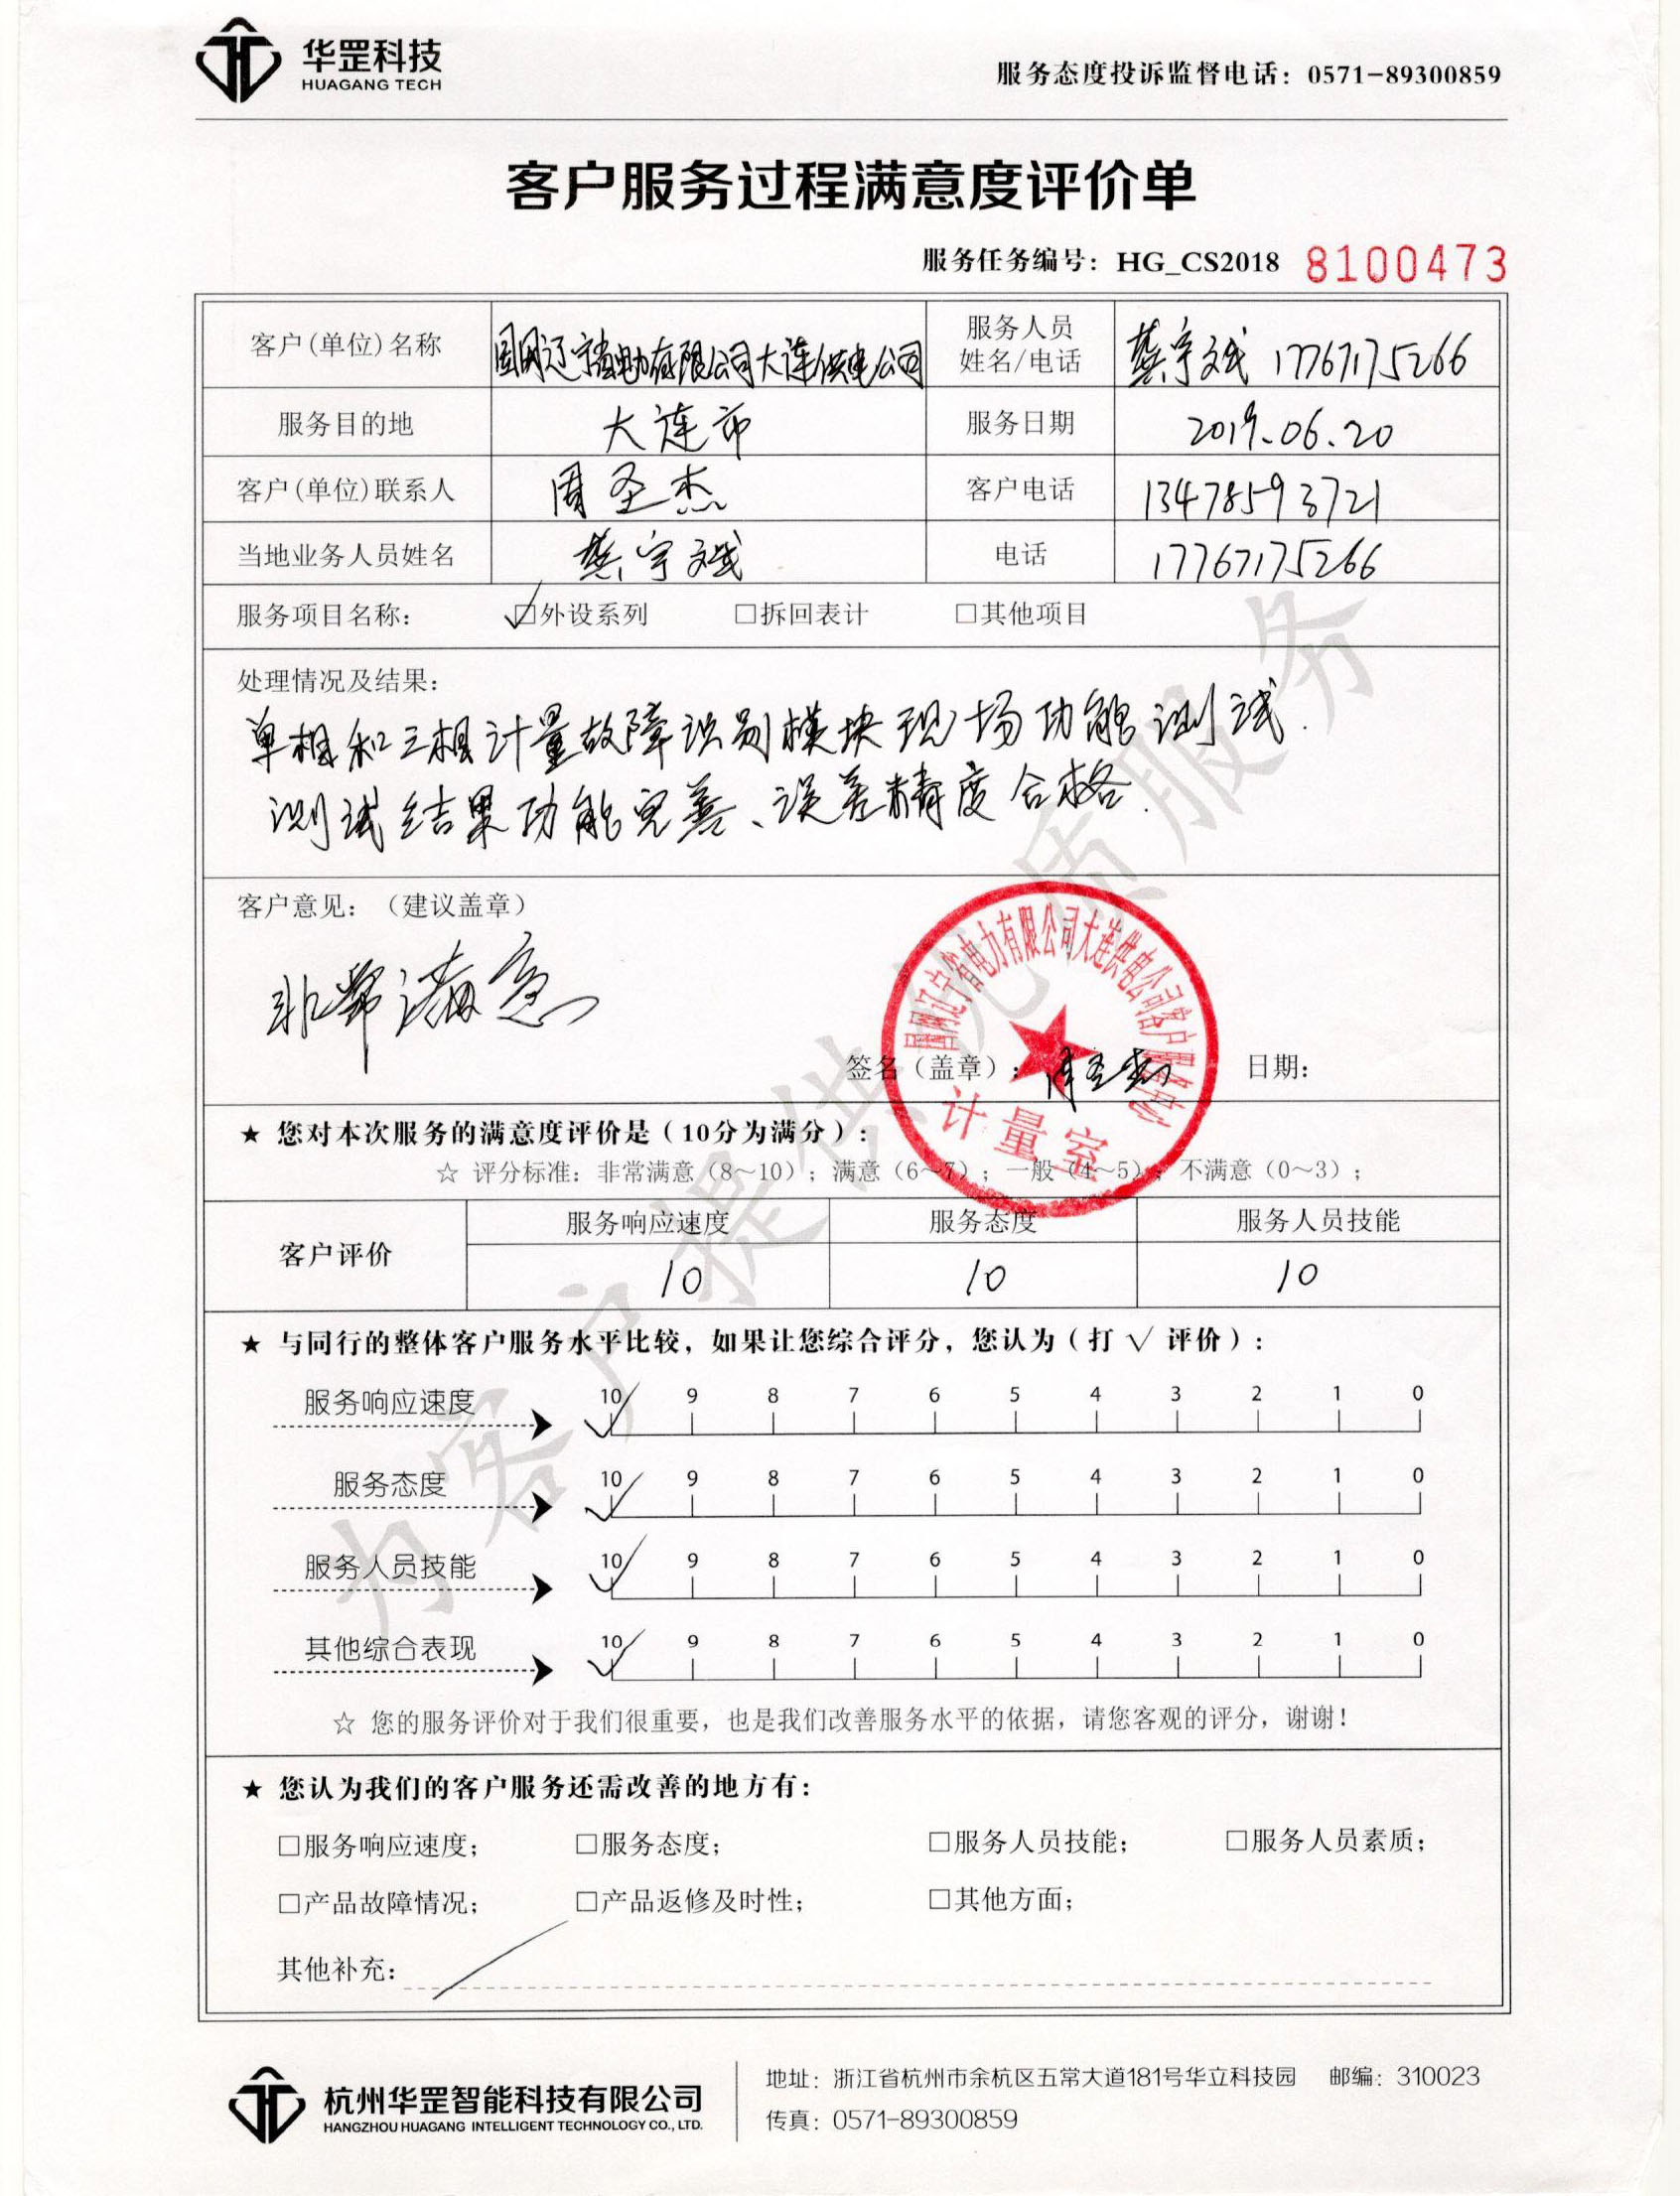 华罡科技
HUAGANG TECH
服务态度投诉监督电话：0571-89300859
客户服务过程满意度评价单
服务任务编号：HG_CS2018 8100473
客户(单位)名称 国网辽宁省电力有限公司大连供电公司 服务人员姓名/电话 龚宇斌 17767175266
服务目的地 大连市 服务日期 2019.06.20
客户(单位)联系人 周圣杰 客户电话 13478593721
当地业务人员姓名 龚宇斌 电话 17767175266
服务项目名称： ☑外设系列 □拆回表计 □其他项目
处理情况及结果：
单相和三相计量故障识别模块现场功能测试.
测试结果功能完善、误差精度合格.
客户意见：（建议盖章）
非常满意
国网辽宁省电力有限公司大连供电公司客户服务中心
计量室
签名（盖章）：周圣杰 日期：
★ 您对本次服务的满意度评价是（10分为满分）：
☆ 评分标准：非常满意（8～10）；满意（6～7）；一般（4～5）；不满意（0～3）；
客户评价 服务响应速度 服务态度 服务人员技能
10 10 10
★ 与同行的整体客户服务水平比较，如果让您综合评分，您认为（打 √ 评价）：
服务响应速度 10 9 8 7 6 5 4 3 2 1 0
服务态度 10 9 8 7 6 5 4 3 2 1 0
服务人员技能 10 9 8 7 6 5 4 3 2 1 0
其他综合表现 10 9 8 7 6 5 4 3 2 1 0
☆ 您的服务评价对于我们很重要，也是我们改善服务水平的依据，请您客观的评分，谢谢！
★ 您认为我们的客户服务还需改善的地方有：
□服务响应速度； □服务态度； □服务人员技能； □服务人员素质；
□产品故障情况； □产品返修及时性； □其他方面；
其他补充：
为客户提供优质服务
杭州华罡智能科技有限公司
HANGZHOU HUAGANG INTELLIGENT TECHNOLOGY CO., LTD.
地址：浙江省杭州市余杭区五常大道181号华立科技园 邮编：310023
传真：0571-89300859